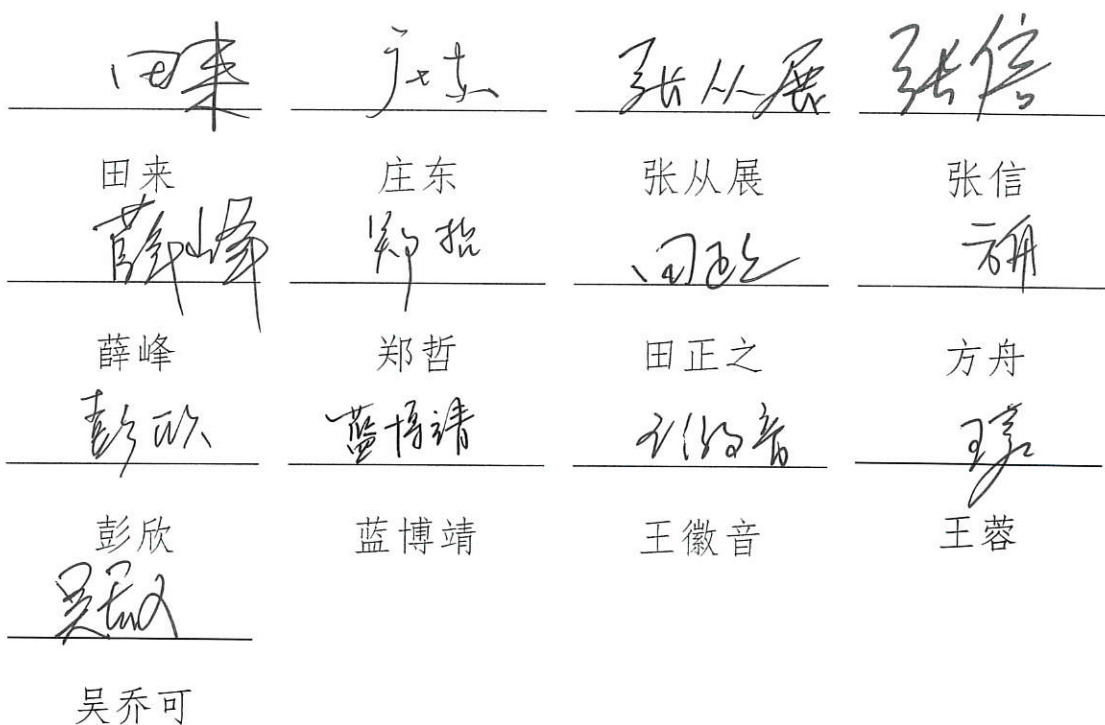 田来 庄东 张从展 张信
田来 庄东 张从展 张信
薛峰 郑哲 方舟
薛峰 郑哲 田正之 方舟
彭欣 蓝博靖
彭欣 蓝博靖 王徽音 王蓉
吴乔可